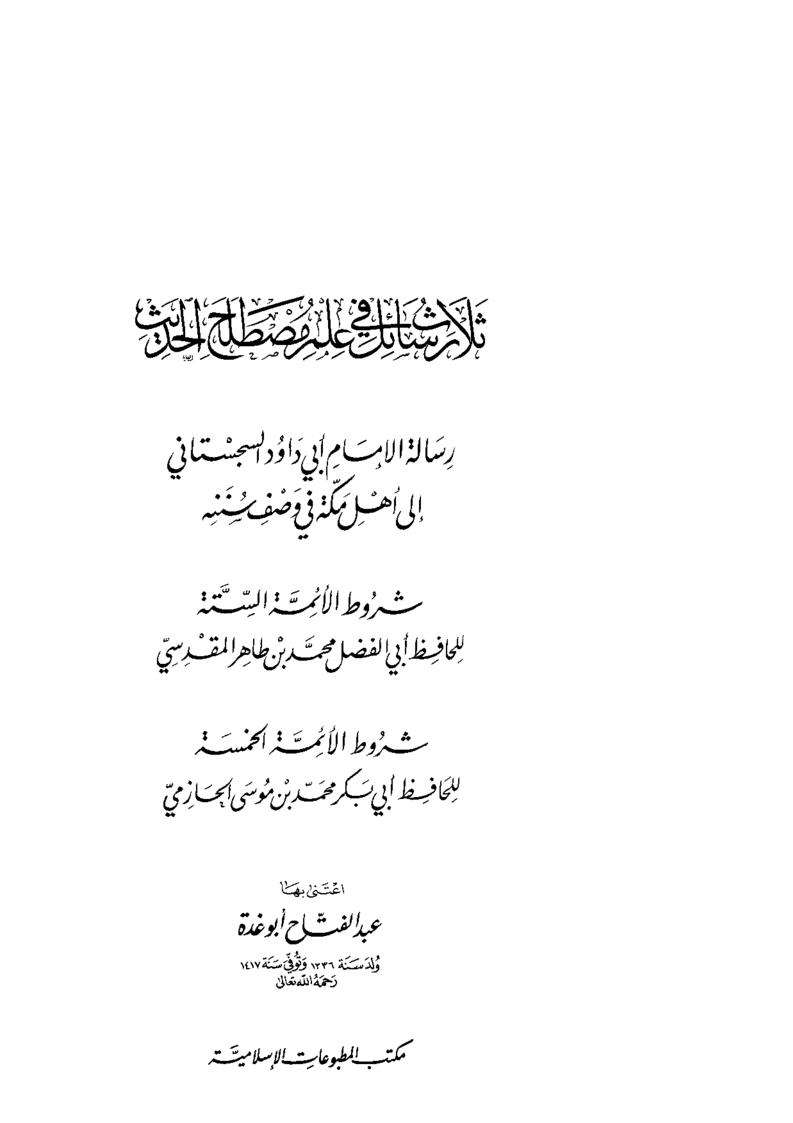 ثَلَاثُ رَسَائِل فِي عِلْمِ مُصْطَلَحِ الحَدِيثِ
رِسَالة الإمَامِ أبي دَاوُد السجسْتاني
إلى أهْلِ مَكّة في وَصْفِ سُنَنِه
شرُوط الأئِمَّة السِّتَّة
للحَافِظ أبي الفضل محمَّد بْن طاهِر المقْدِسِيّ
شرُوط الأئِمَّة الخمسَة
للحَافِظ أبي بَكر محمّد بْن مُوسَى الحَازِميّ
اعْتَنى بهَا
عبد الفتّاح أبو غدة
وُلد سَنَة ١٣٣٦ وَتُوفيّ سَنَة ١٤١٧
رَحمَهُ الله تعَالىٰ
مكتب المطبوعات الإسلاميَّة